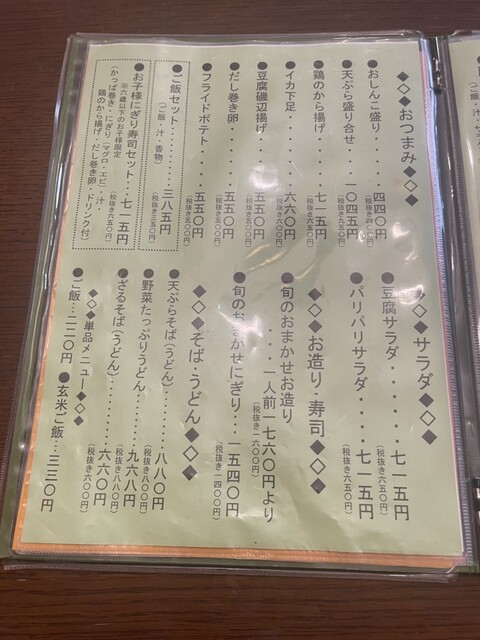 ◆◇◆おつまみ◆◇◆
●おしんこ盛り・・・・四四〇円
(税抜き四〇〇円)
●天ぷら盛り合せ・・一〇四五円
(税抜き九五〇円)
●鶏のから揚げ・・・・七一五円
(税抜き六五〇円)
●イカ下足・・・・・・六六〇円
(税抜き六〇〇円)
●豆腐磯辺揚げ・・・・五五〇円
(税抜き五〇〇円)
●だし巻き卵・・・・・五五〇円
(税抜き五〇〇円)
●フライドポテト・・・・五五〇円
(税抜き五〇〇円)
●ご飯セット・・・・・・・・二八五円
(ご飯・汁・香物)
●お子様にぎり寿司セット・・七一五円
※六歳以下のお子様限定
(税抜き六五〇円)
(かっぱ巻き・にぎり(マグロ・エビ)・汁・
鶏のから揚げ・だし巻き卵・ドリンク付)
◆◇◆サラダ◆◇◆
●豆腐サラダ・・・・・七一五円
(税抜き六五〇円)
●パリパリサラダ・・・・七一五円
(税抜き六五〇円)
◆◇◆お造り・寿司◆◇◆
●旬のおまかせお造り
・・・・一人前一七六〇円より
(税抜き一六〇〇円)
●旬のおまかせにぎり・・・一五四〇円
(税抜き一四〇〇円)
◆◇◆そば・うどん◆◇◆
●天ぷらそば(うどん)・・・・・八八〇円
(税抜き八〇〇円)
●野菜たっぷりうどん・・・・・九六八円
(税抜き八八〇円)
●ざるそば(うどん)・・・・・・六六〇円
(税抜き六〇〇円)
◆◇◆単品メニュー◆◇◆
●ご飯‥二二〇円 ●玄米ご飯‥三三〇円